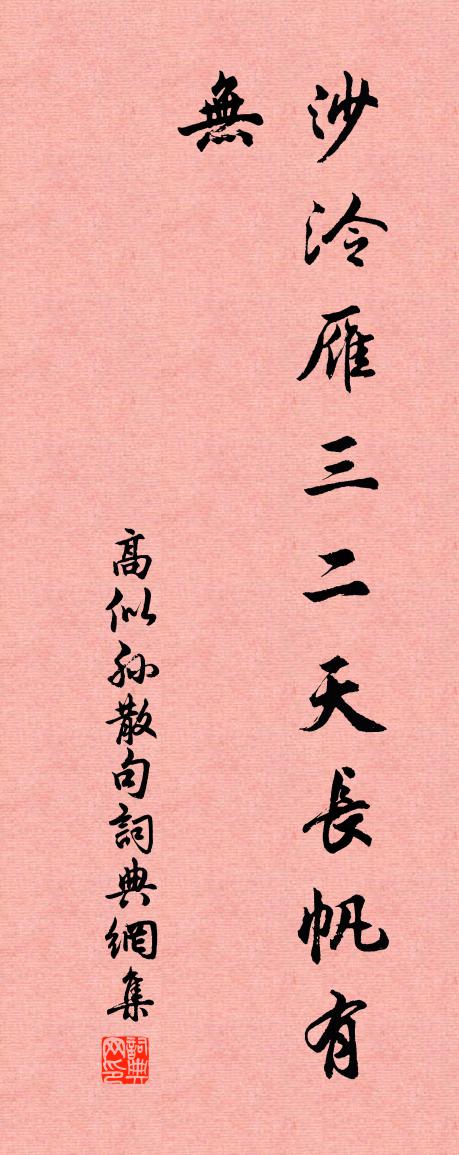 沙泠雁三二天長帆有
無
高似孙散句詞典網集
詞典网印